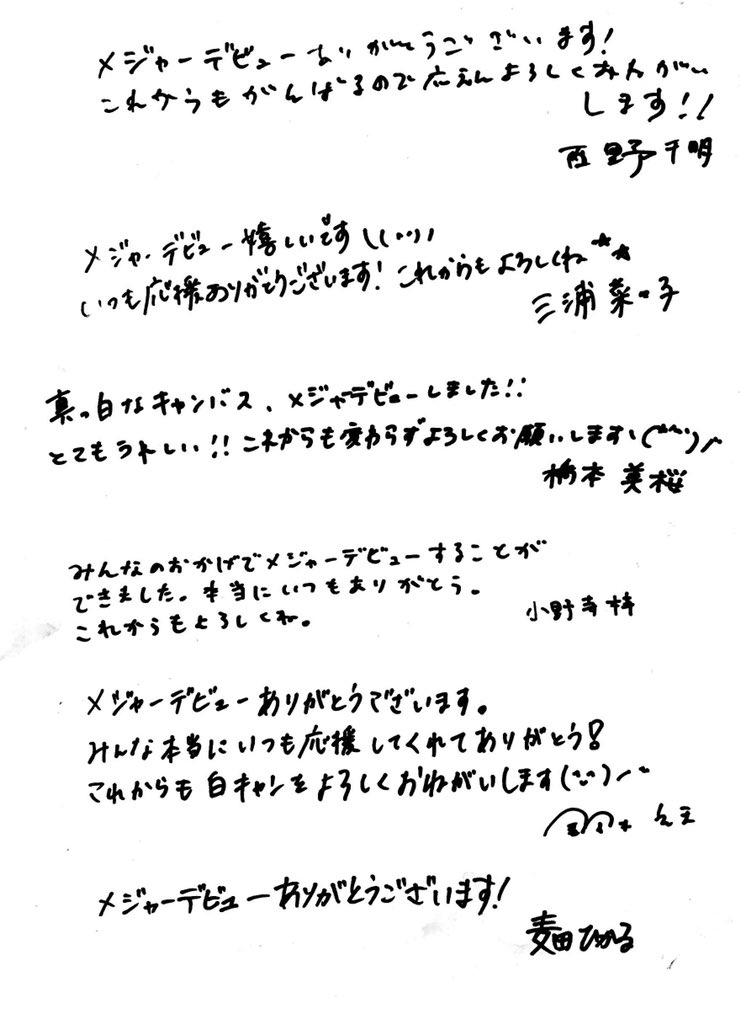 メジャーデビューありがとうございます!
これからもがんばるので応えんよろしくおねがい
します!!
西野千明
メジャーデビュー嬉しいです\((・・)/
いつも応援ありがとうございます!これからもよろしくね★★
三浦菜々子
真っ白なキャンバス、メジャーデビューしました!!
とてもうれしい!!これからも変わらずよろしくお願いします\(^^)/
橋本美桜
みんなのおかげでメジャーデビューすることが
できました。本当にいつもありがとう。
これからもよろしくね。
小野寺梓
メジャーデビューありがとうございます。
みんな本当にいつも応援してくれてありがとう!
これからも白キャンをよろしくおねがいします(・・)/
メジャーデビューありがとうございます!
麦田ひかる